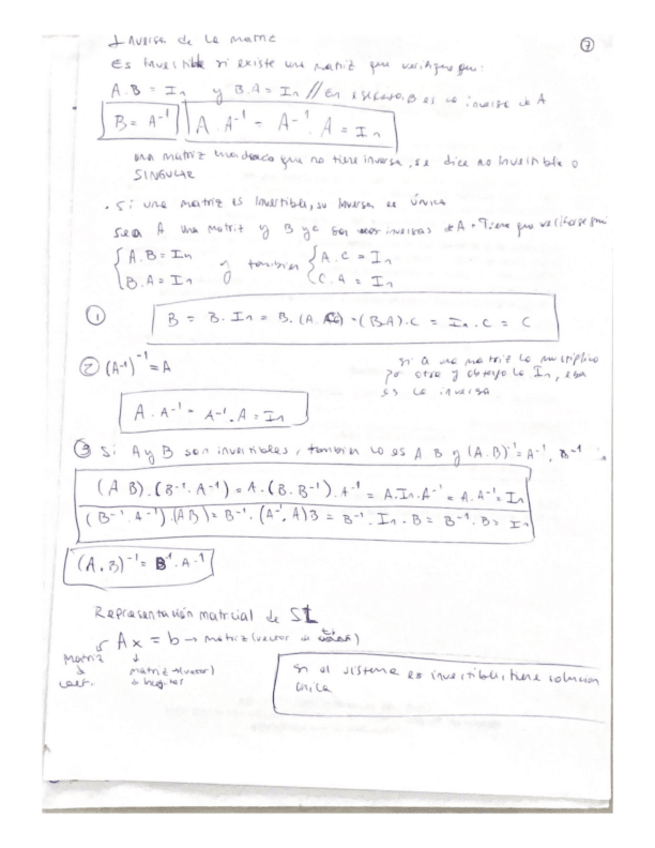 Inversa de la matriz
7
Es invertible si existe una matriz que verifique que:
A.B = In y B.A = In // En ese caso, B es la inversa de A
B = A⁻¹ A A⁻¹ = A⁻¹. A = In
una matriz cuadrada que no tiene inversa, se dice no invertible o
SINGULAR
. Si una matriz es invertible, su inversa es única
Sea A una matriz y B y C son inversas de A. Tiene que verificarse que
{ A.B = In y también { A.C = In
{ B.A = In { C.A = In
① B = B.In = B.(A.C) = (B.A).C = In.C = C
② (A⁻¹)⁻¹ = A
si a una matriz la multiplico
por otra y obtengo la In, esa
es la inversa
A.A⁻¹ = A⁻¹.A = In
③ Si A y B son invertibles, también lo es A B y (A.B)⁻¹ = A⁻¹. B⁻¹
(A B).(B⁻¹.A⁻¹) = A.(B.B⁻¹).A⁻¹ = A.In.A⁻¹ = A.A⁻¹ = In
(B⁻¹ A⁻¹).(AB) = B⁻¹.(A⁻¹.A)B = B⁻¹.In.B = B⁻¹.B = In
(A.B)⁻¹ = B⁻¹.A⁻¹
Representación matricial de SL
Ax = b → matriz (vector de
matriz
coef.
matriz (vector)
si el sistema es invertible, tiene solucion
única